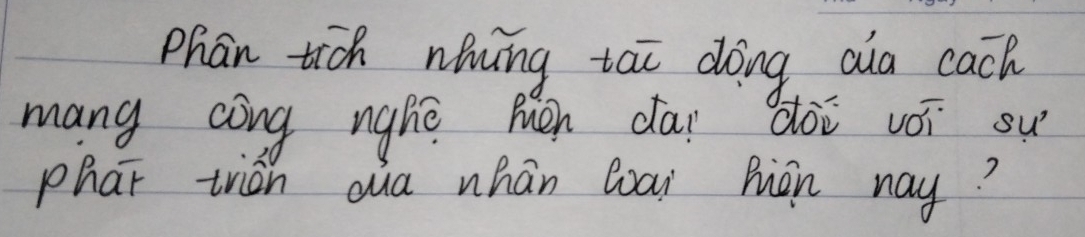 Phân tích những tác động của cách
mạng công nghệ hiện đại đối với sự
phát triển của nhân loại hiện nay?